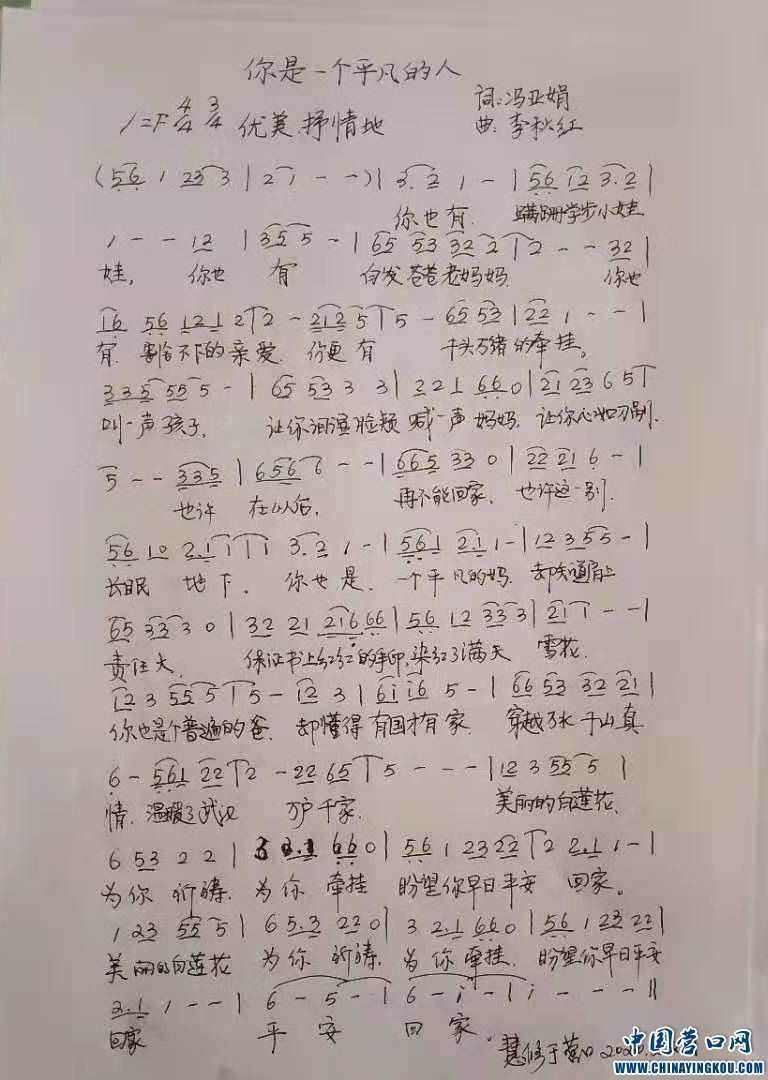 你是一个平凡的人
词:冯亚娟
1=F 4/4 3/4 优美.抒情地
曲:李秋红
(56 1 23 3 | 2 1 - -)| 3.2 1 - | 56 12 3.2 |
你也有. 蹒跚学步小娃
1 - - 12 | 35 5 - | 65 53 32 2 | 2 - - 32 |
娃, 你也 有 白发爸爸老妈妈. 你也
16 56 121 2 | 2 - 212 5 | 5 - 65 53 | 22 1 - - |
有. 割舍不下的亲爱. 你更有 千头万绪的牵挂。
335 55 5 - | 65 53 3 3 | 2 21 66 0 | 21 23 6 5 |
叫一声孩子, 让你泪湿脸颊 喊一声妈妈, 让你心如刀割.
5 - - 335 | 656 6 - - | 665 33 0 | 22 21 6 - |
也许 在以后, 再不能回家, 也许这一别.
56 10 2.1 1 | 1 1 3.2 1 - | 561 2.1 1 - | 12 3 55 - |
长眠 地下. 你也是. 一个平凡的妈. 却知道肩上
65 33 3 0 | 32 21 216 66 | 56 12 33 3 | 21 1 - - |
责任大. 保证书上红红的手印,染红了满天 雪花.
12 3 55 5 | 5 - 12 3 | 61 16 5 - | 66 53 32 21 |
你也是个普通的爸. 却懂得 有国才有家. 穿越万水千山真
6 - 561 22 | 2 - 22 65 | 5 - - - | 12 3 55 5 |
情. 温暖了武汉 万户千家. 美丽的白莲花.
6 53 2 2 | 3 2.1 66 0 | 56 1 23 22 | 2 2.1 1 - |
为你 祈祷. 为你 牵挂 盼望你早日平安 回家。
1 23 55 5 | 6 5.3 22 0 | 3 2.1 66 0 | 56 1 23 22 |
美丽的白莲花 为你 祈祷. 为你 牵挂. 盼望你早日平安
2.1 1 - - | 6 - 5 - | 6 - i - | i - - - ||
回家 平 安 回 家.
慧修于营口
中国营口网
WWW.CHINAYINGKOU.COM